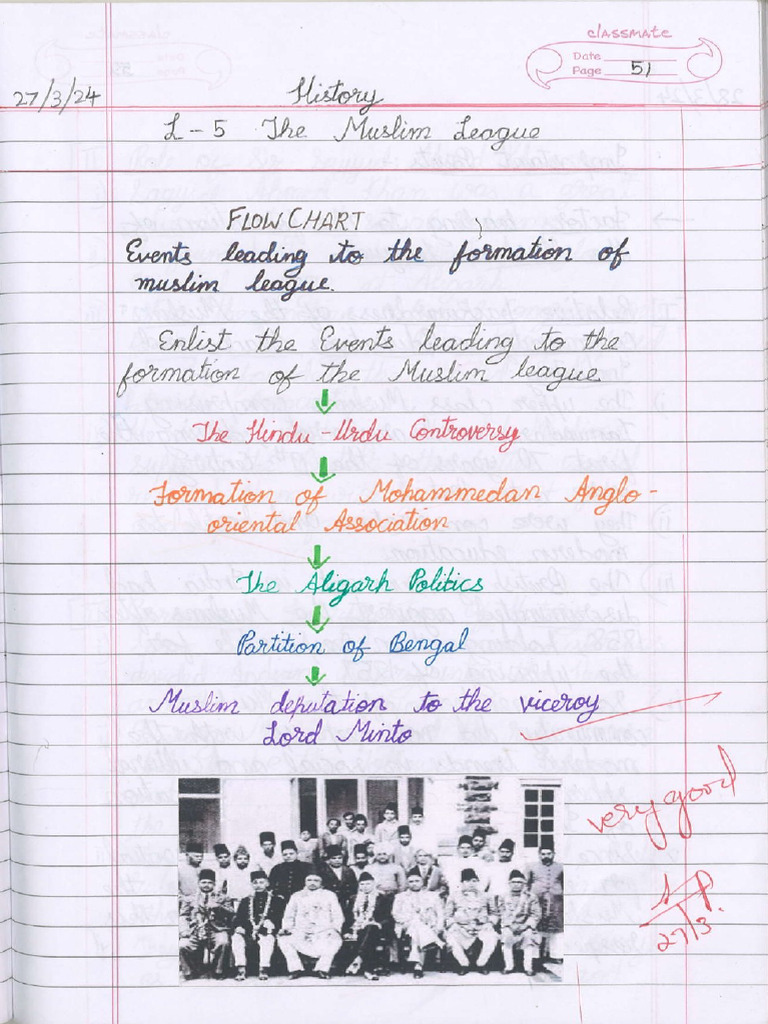 classmate
Date
Page 51
27/3/24
History
L-5 The Muslim League
FLOW CHART
Events leading to the formation of
muslim league.
Enlist the Events leading to the
formation of the Muslim league
The Hindu-Urdu Controversy
Formation of Mohammedan Anglo-
oriental Association
The Aligarh Politics
Partition of Bengal
Muslim deputation to the viceroy
Lord Minto
very good
27/3.